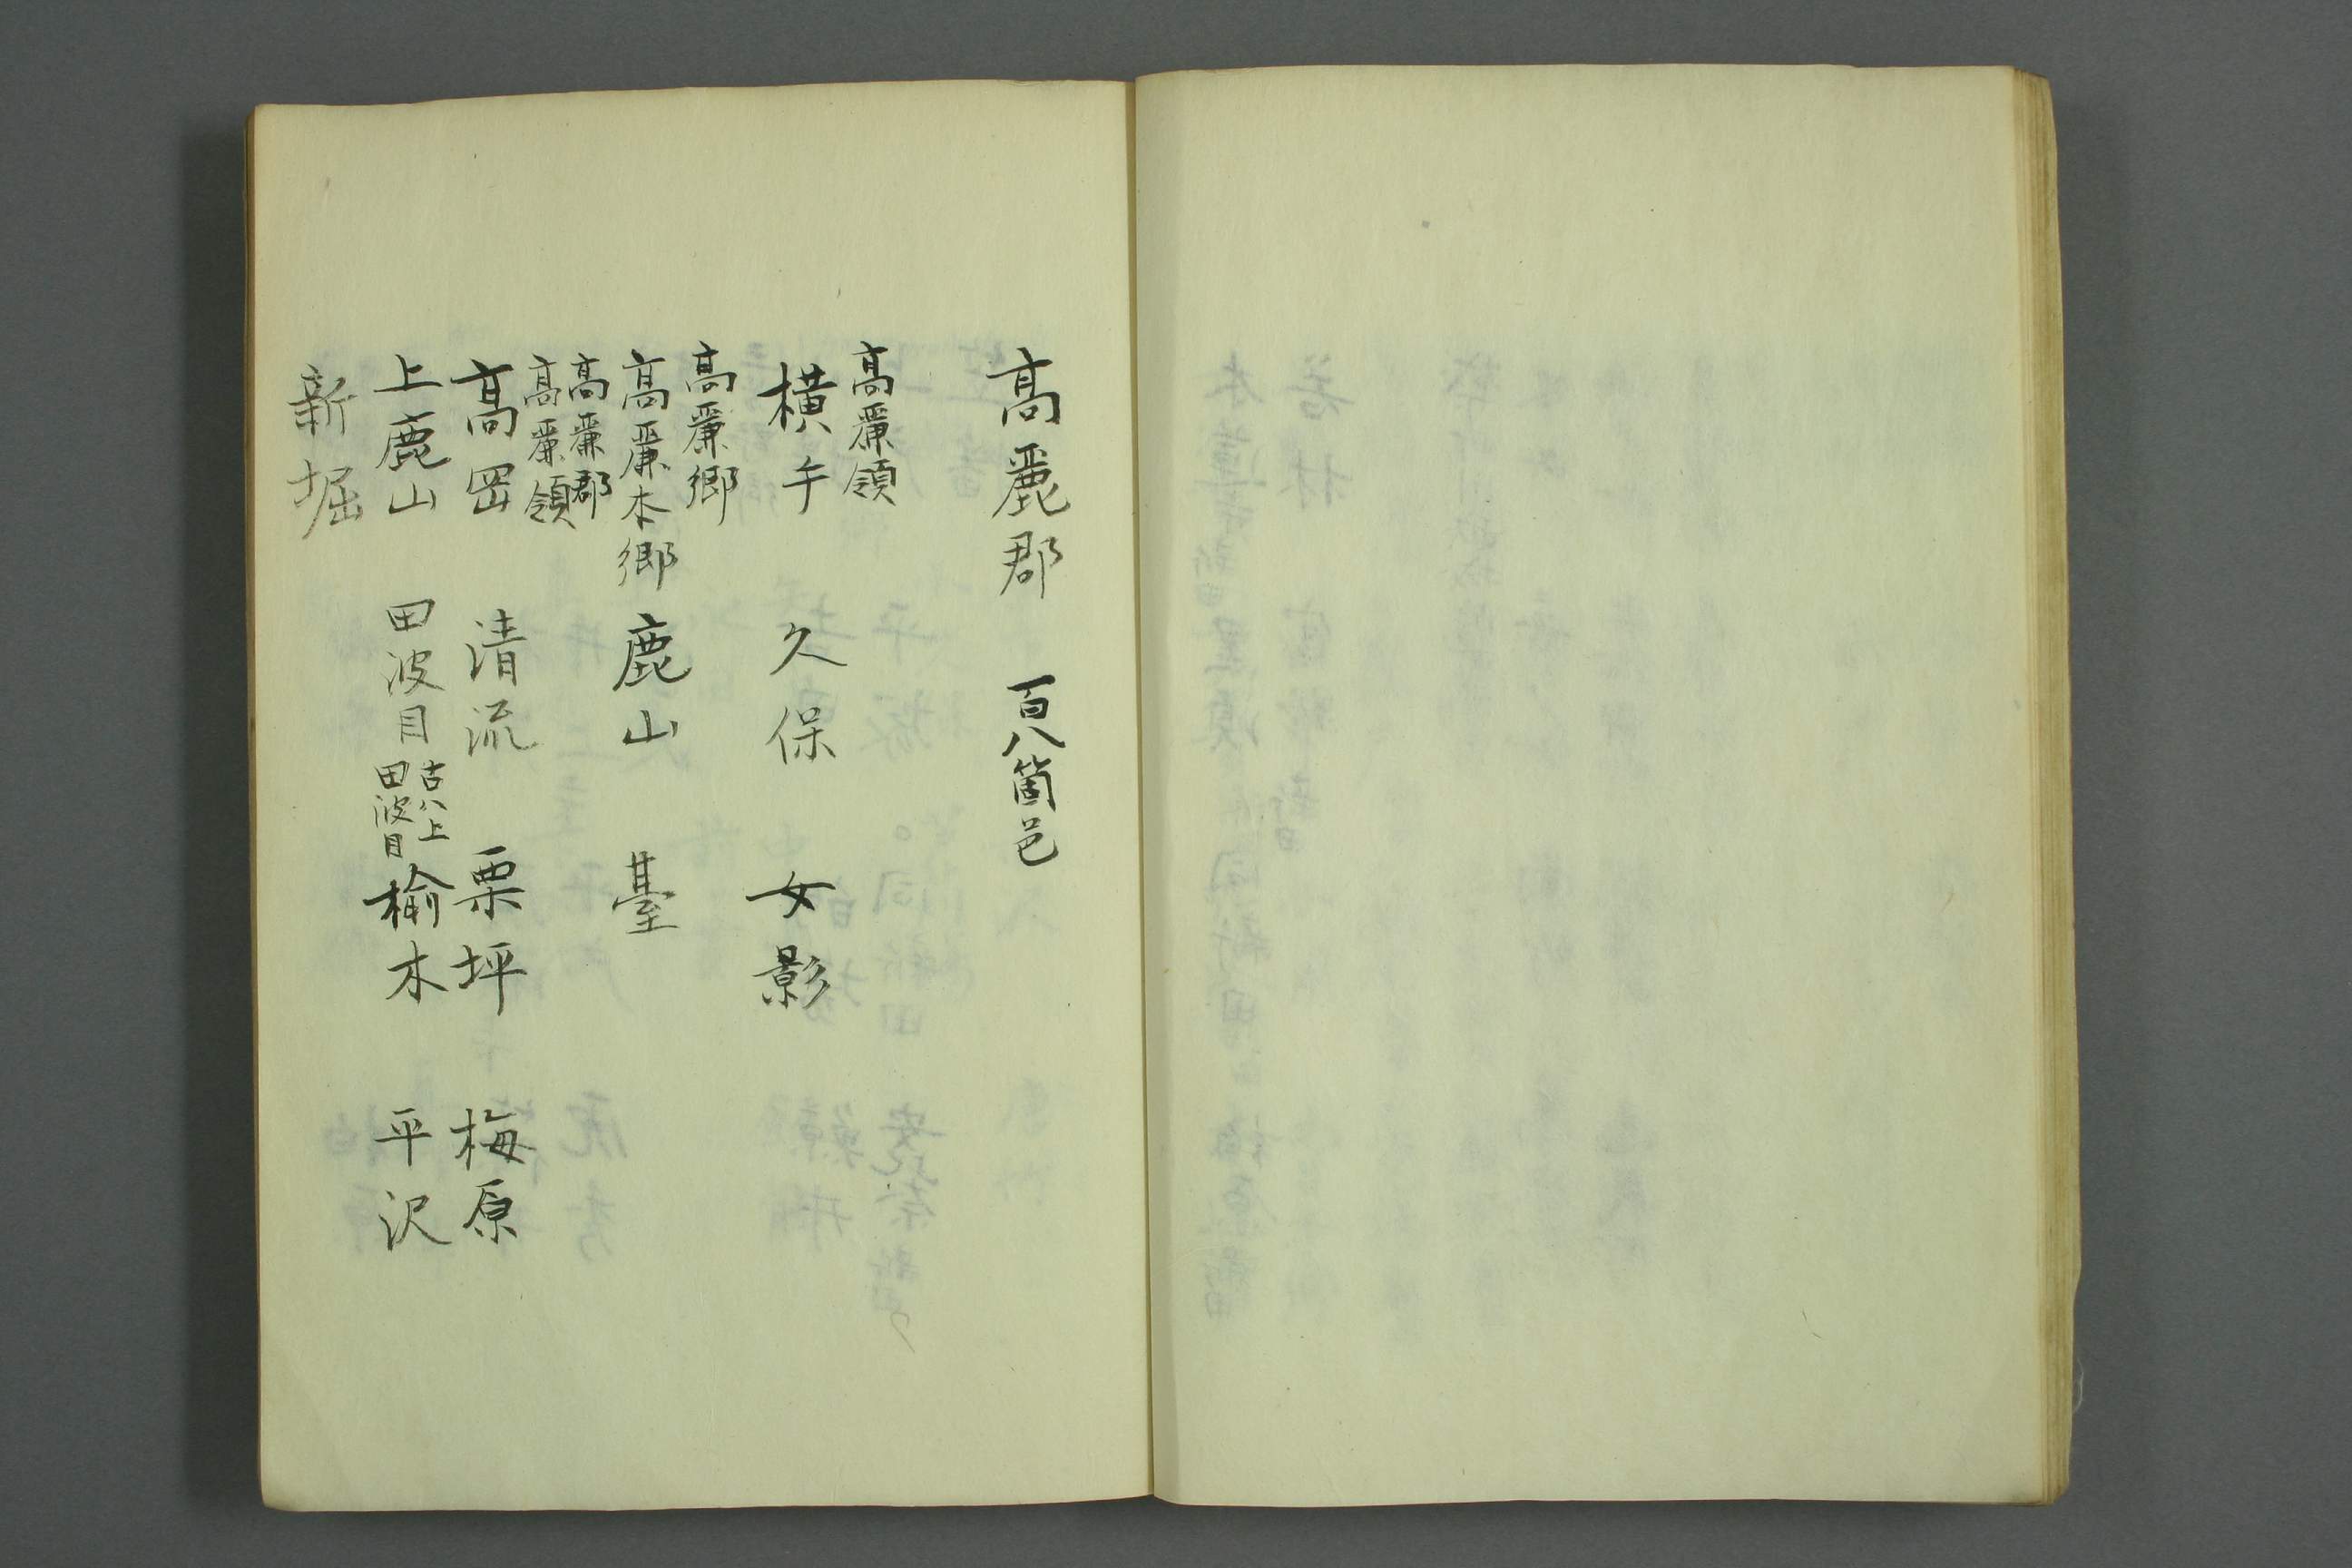 高麗郡　百八箇邑
高麗領
横手　久保　女影
高麗郷
高麗本郷　鹿山　臺
高麗郡
高麗領
高岡　清流　栗坪　梅原
上鹿山　田波目　古ハ上田波目　楡木　平沢
新堀